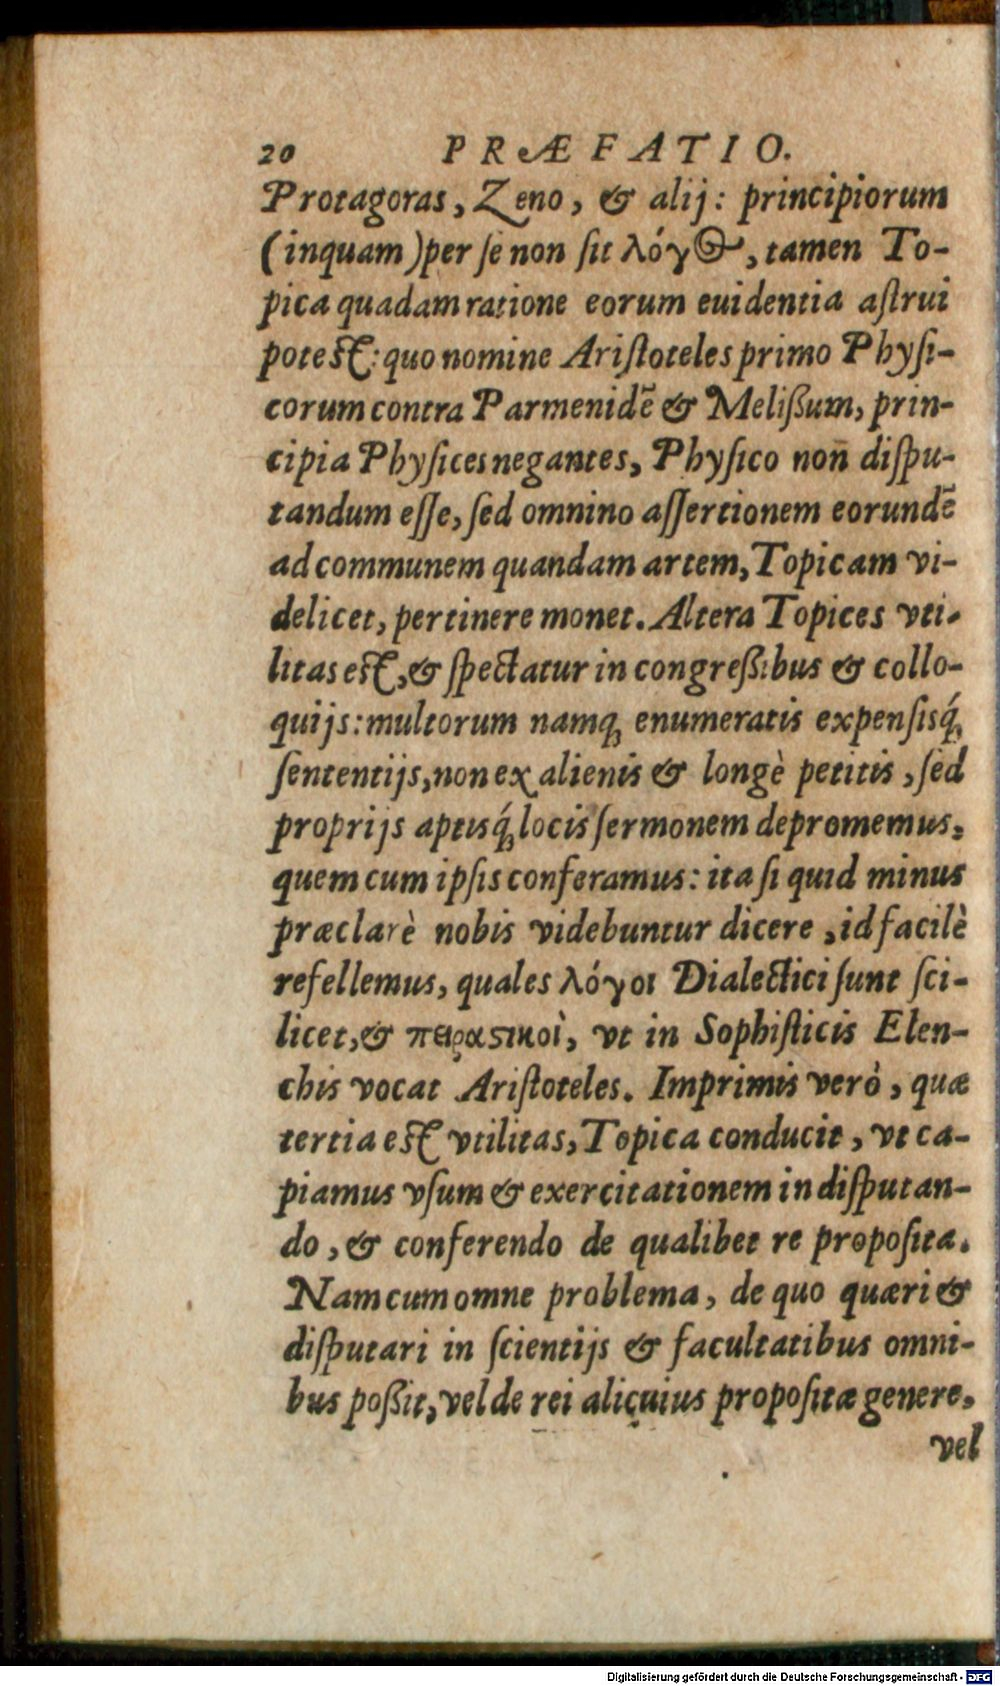 20 PRÆFATIO.
Protagoras, Zeno, & alij: principiorum
(inquam) per ſe non ſit λόγος, tamen To-
pica quadam ratione eorum euidentia aſtrui
poteſt: quo nomine Ariſtoteles primo Phyſi-
corum contra Parmenidẽ & Melißum, prin-
cipia Phyſices negantes, Phyſico non diſpu-
tandum eſſe, ſed omnino aſſertionem eorundẽ
ad communem quandam artem, Topicam vi-
delicet, pertinere monet. Altera Topices vti-
litas eſt, & ſpectatur in congreßibus & collo-
quijs: multorum namq; enumeratis expenſisq́;
ſententijs, non ex alienis & longè petitis, ſed
proprijs aptisq́; locis ſermonem depromemus,
quem cum ipſis conferamus: ita ſi quid minus
præclarè nobis videbuntur dicere, id facilè
refellemus, quales λόγοι Dialectici ſunt ſci-
licet, & πειραςικοὶ, vt in Sophiſticis Elen-
chis vocat Ariſtoteles. Imprimis verò, quæ
tertia eſt vtilitas, Topica conducit, vt ca-
piamus vſum & exercitationem in diſputan-
do, & conferendo de qualibet re propoſita.
Nam cum omne problema, de quo quæri &
diſputari in ſcientijs & facultatibus omni-
bus poßit, vel de rei alicuius propoſitæ genere,
vel
Digitalisierung gefördert durch die Deutsche Forschungsgemeinschaft - DFG